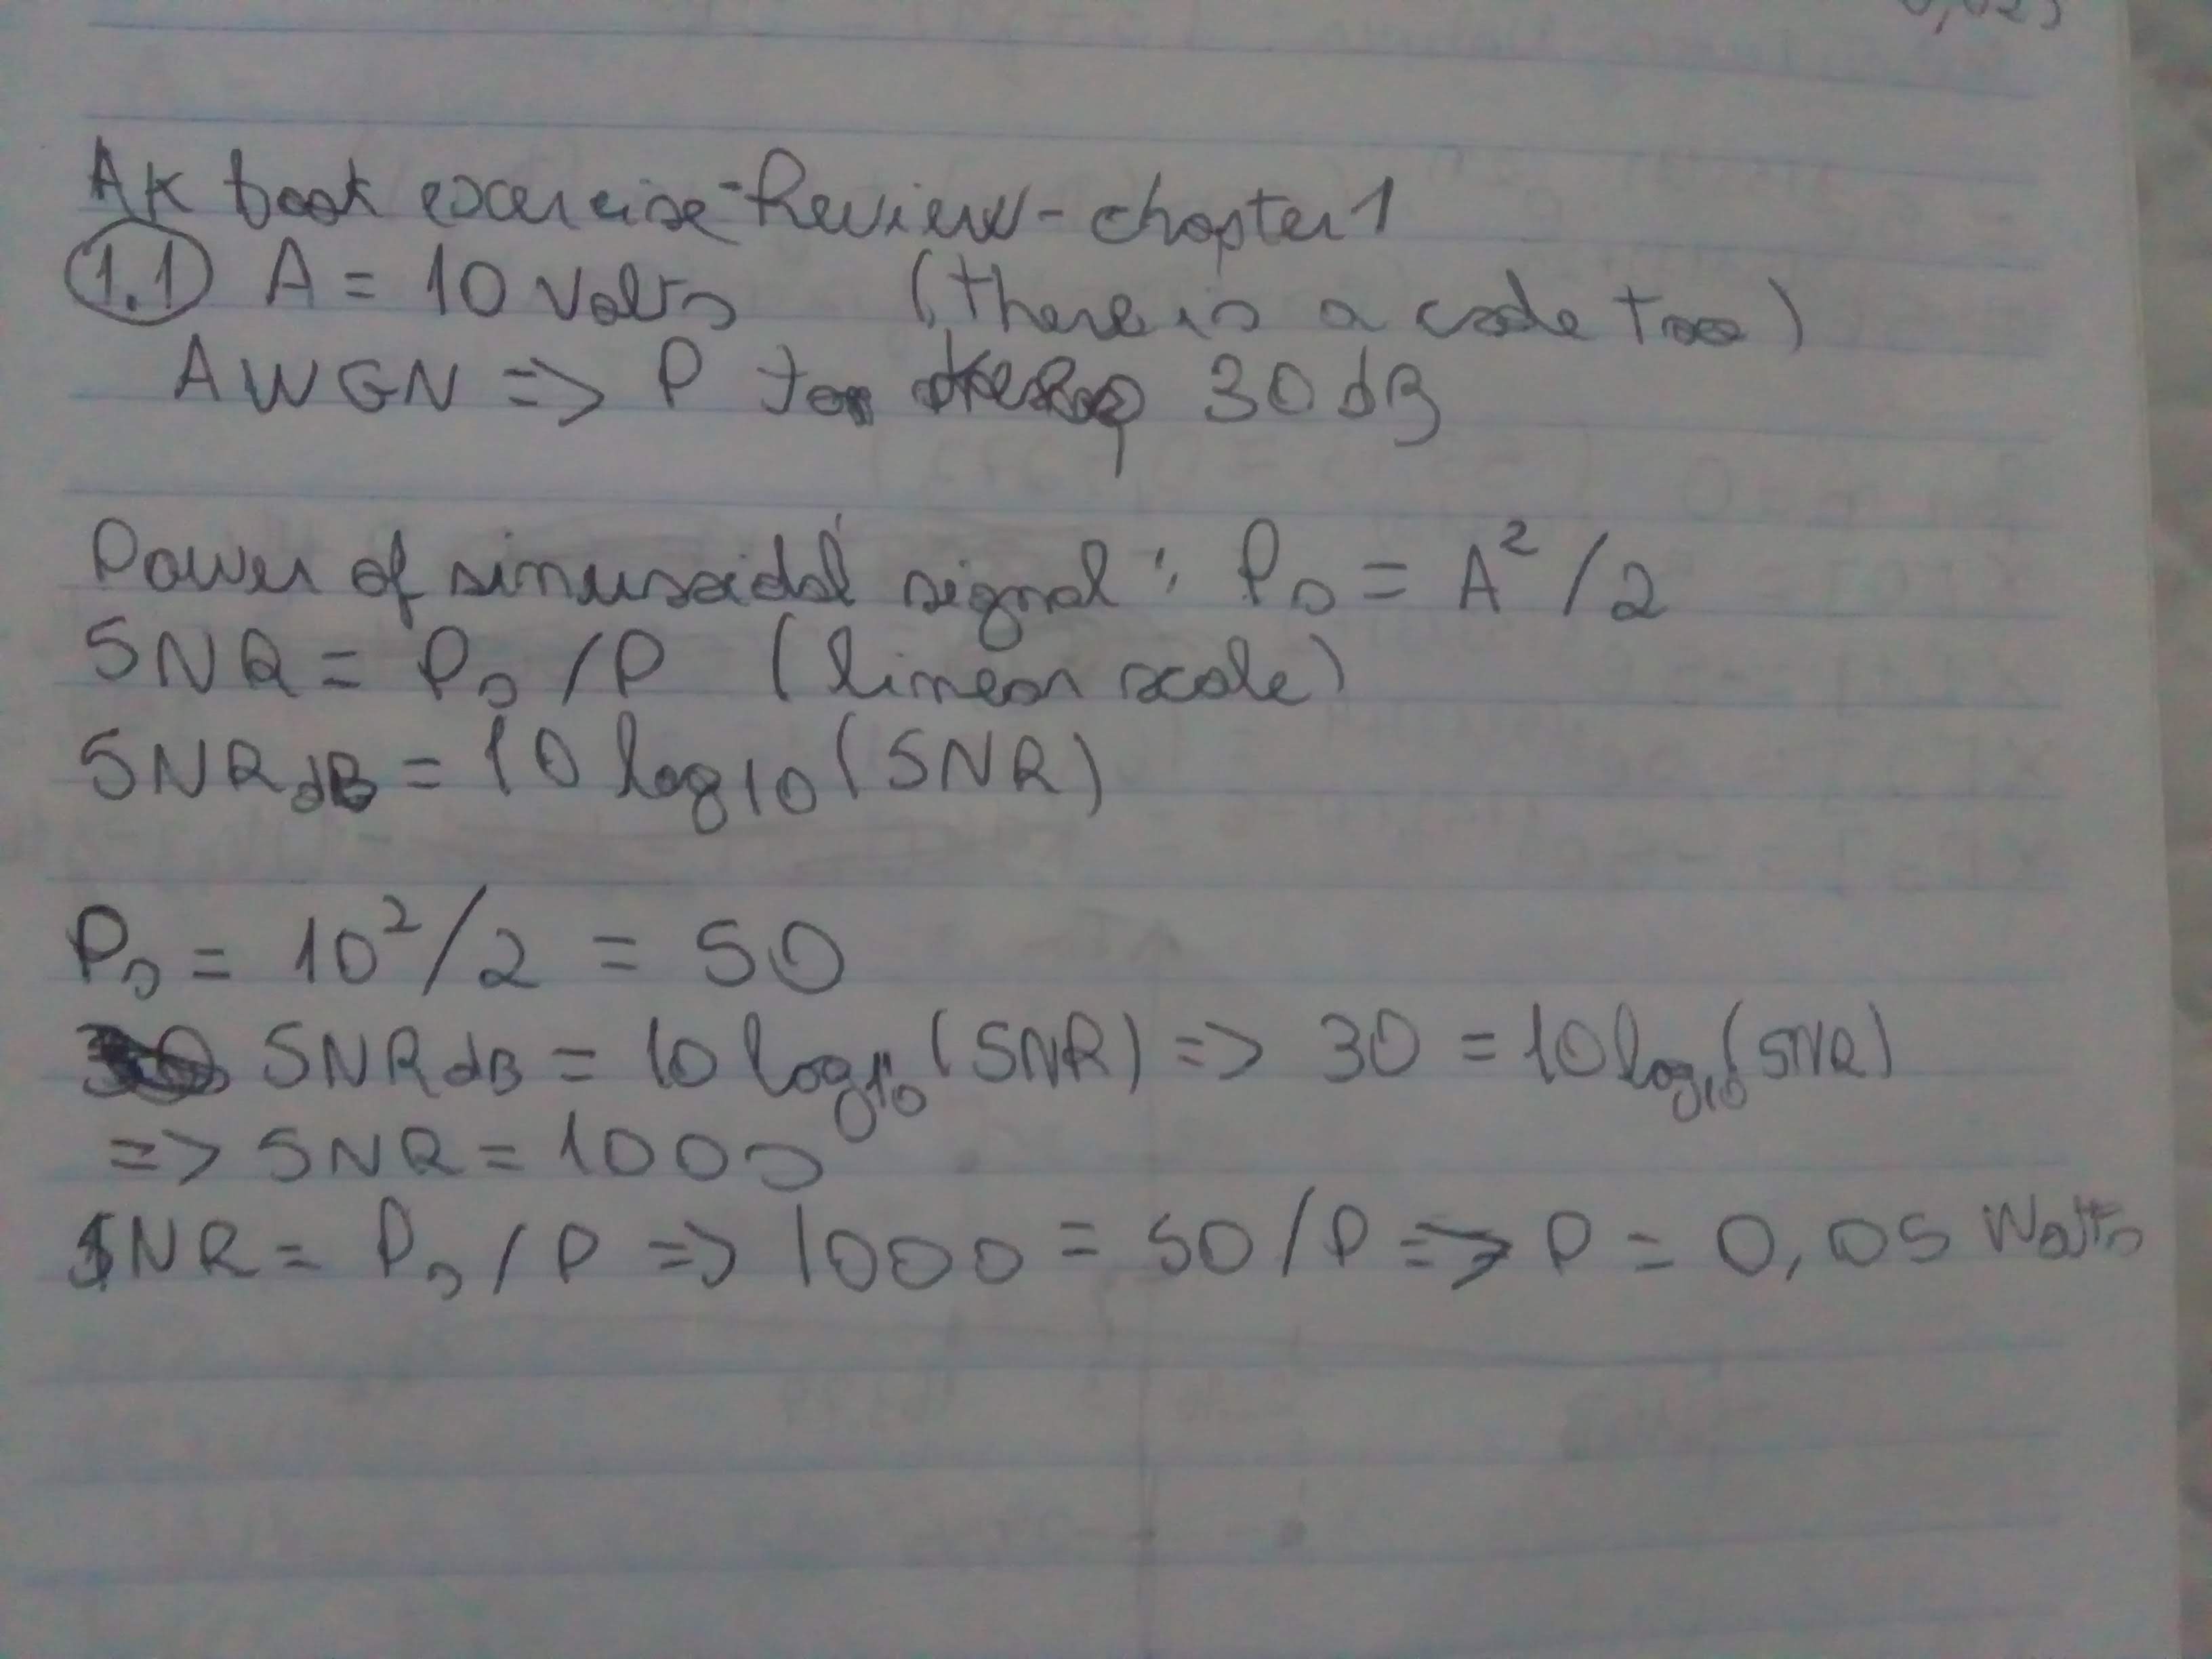 AK book exercise - Review - chapter 1
1.1 A = 10 Volts (there is a code too)
AWGN => P to 30 dB
Power of sinusoidal signal: Ps = A²/2
SNR = Ps/P (linear scale)
SNRdB = 10 log10 (SNR)
Ps = 10²/2 = 50
SNRdB = 10 log10 (SNR) => 30 = 10 log10 (SNR)
=> SNR = 1000
SNR = Ps/P => 1000 = 50/P => P = 0,05 Watts